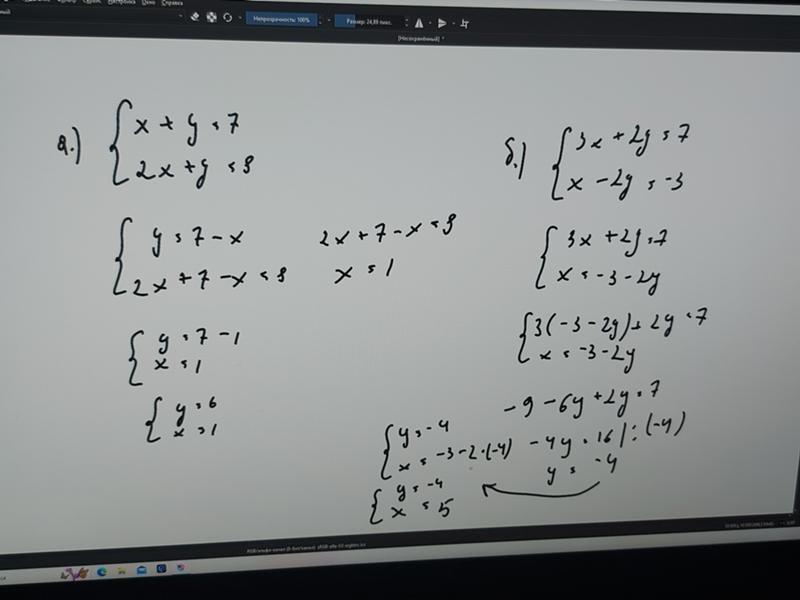 Сервис Настройка Окно Справка
Непрозрачность: 100% Размер: 24,89 пикс.
[Несохранённый] *
а.) { x + y = 7
2x + y = 8
{ y = 7 - x
2x + 7 - x = 8
2x + 7 - x = 8
x = 1
{ y = 7 - 1
x = 1
{ y = 6
x = 1
б.) { 3x + 2y = 7
x - 2y = -3
{ 3x + 2y = 7
x = -3 - 2y
{ 3(-3 - 2y) + 2y = 7
x = -3 - 2y
-9 - 6y + 2y = 7
-4y = 16 | : (-4)
y = -4
{ y = -4
x = -3 - 2·(-4)
{ y = -4
x = 5